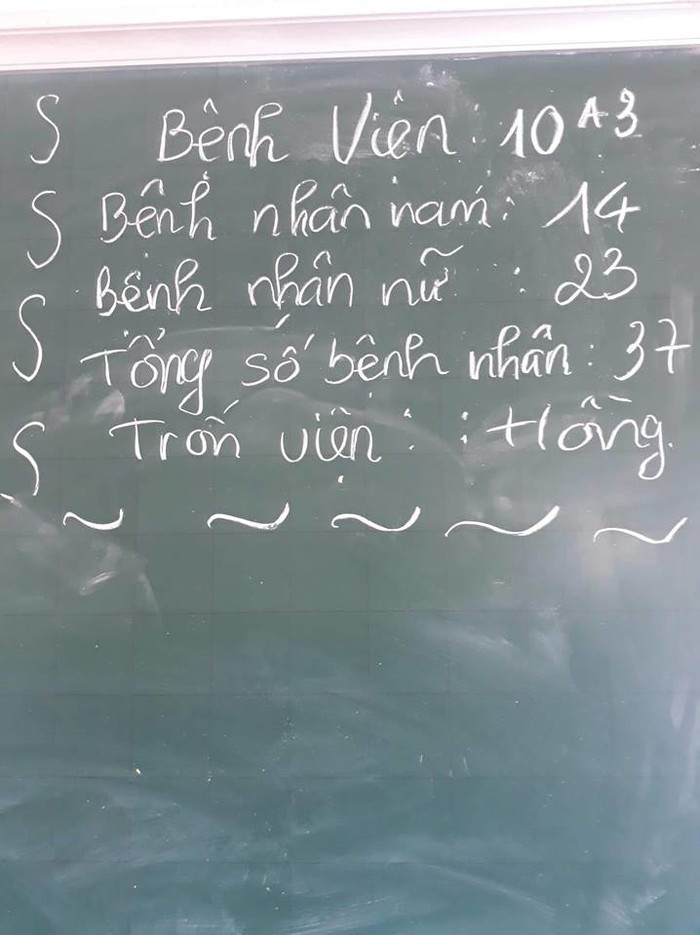 Bệnh Viện: 10A3
Bệnh nhân nam: 14
Bệnh nhân nữ : 23
Tổng số bệnh nhân: 37
Trốn viện : Hồng.